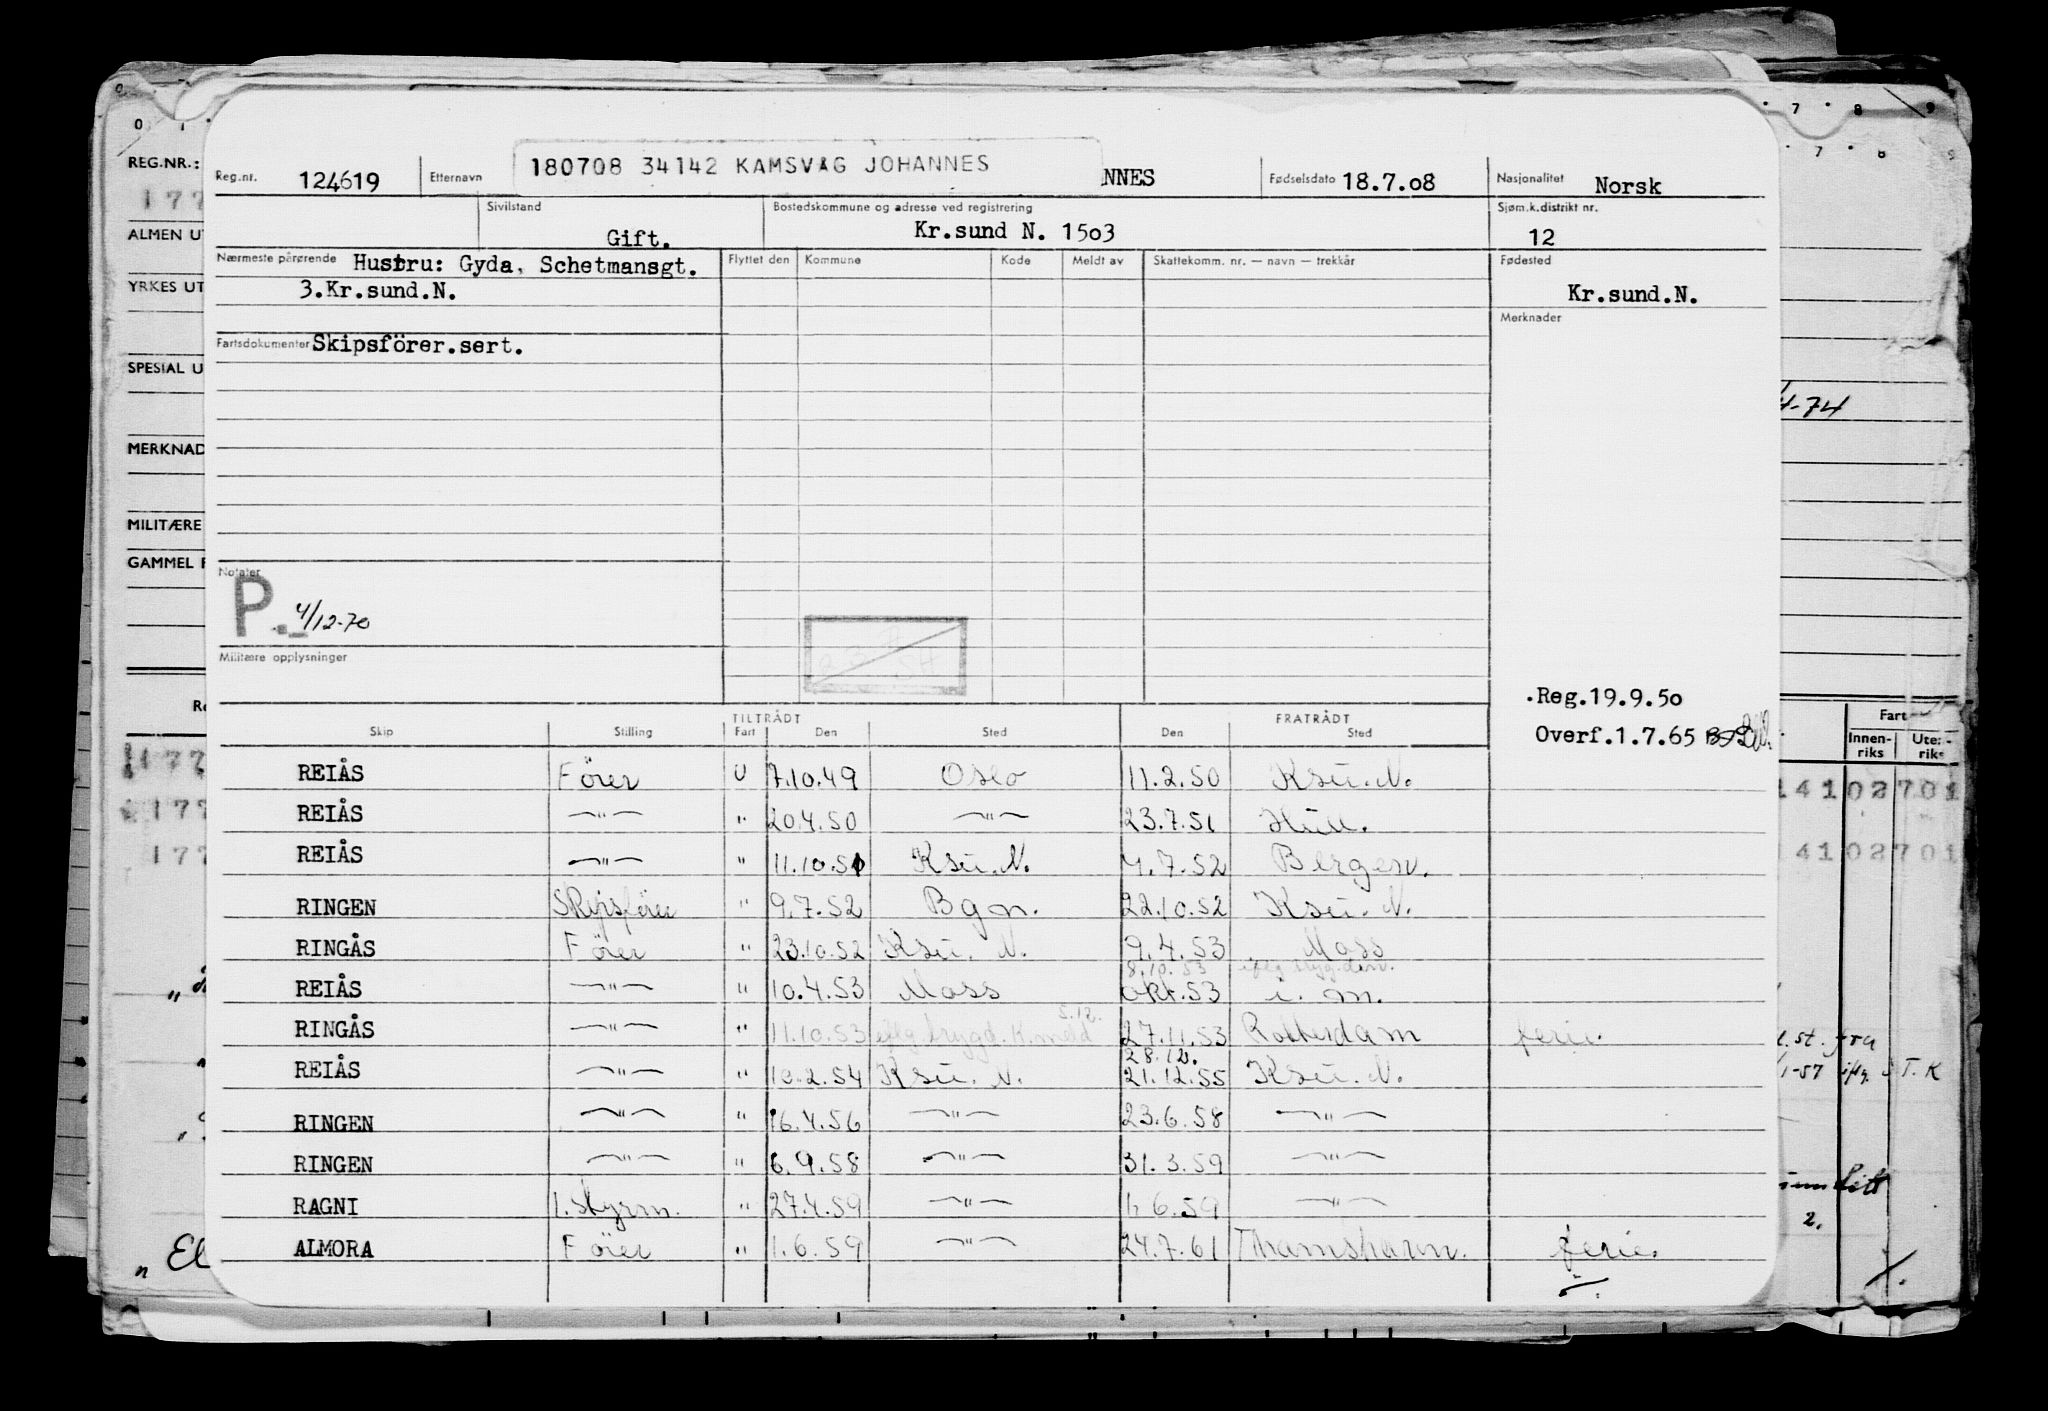 0 1 7 8 9
7 8 9
REG.NR.:
177
ALMEN UT
YRKES UT
SPESIAL U
MERKNAD
MILITÆRE
GAMMEL F
Reg.nr. 124619 Etternavn 180708 34142 KAMSVÅG JOHANNES NNES Fødselsdato 18.7.o8 Nasjonalitet Norsk
Sivilstand Gift. Bostedskommune og adresse ved registrering Kr.sund N. 15o3 Sjøm.k.distrikt nr. 12
Nærmeste pårørende Hustru: Gyda, Schetmansgt. Flyttet den Kommune Kode Meldt av Skattekomm. nr. — navn — trekkår Fødested
3.Kr.sund.N. Kr.sund.N.
Merknader
Fartsdokumenter Skipsförer.sert.
4-74
Notater
P. 4/12-70
Militære opplysninger
.Reg.19.9.5o
Overf.1.7.65
TILTRÅDT FRATRÅDT
Skip Stilling Fart Den Sted Den Sted
Fart
Innen-riks Uten-riks
REIÅS Förer U 7.10.49 Oslo 11.2.50 Ksu.N.
REIÅS —"— " 20.4.50 —"— 23.7.51 Hull.
REIÅS —"— " 11.10.51 Ksu.N. 4.7.52 Bergen.
RINGEN Skipsförer " 9.7.52 Bgn. 22.10.52 Ksu.N.
RINGÅS Förer " 23.10.52 Ksu.N. 9.4.53 Moss
8.10.53
REIÅS —"— " 10.4.53 Moss okt.53
5.12.
RINGÅS —"— " 11.10.53 iflg. trygd.k.meld 27.11.53 Rotterdam ferie.
28.12.
REIÅS —"— " 10.2.54 Ksu.N. 21.12.55 Ksu.N.
RINGEN —"— " 16.4.56 —"— 23.6.58 —"—
RINGEN —"— " 6.9.58 —"— 31.3.59 —"—
RAGNI 1.styrm. " 27.4.59 —"— 1.6.59 —"—
ALMORA Förer " 1.6.59 —"— 24.7.61 Thamshavn. ferie.
141 02 701
141 02 701
l.st. fra
1-57 iflg. S.T.K
2.
El